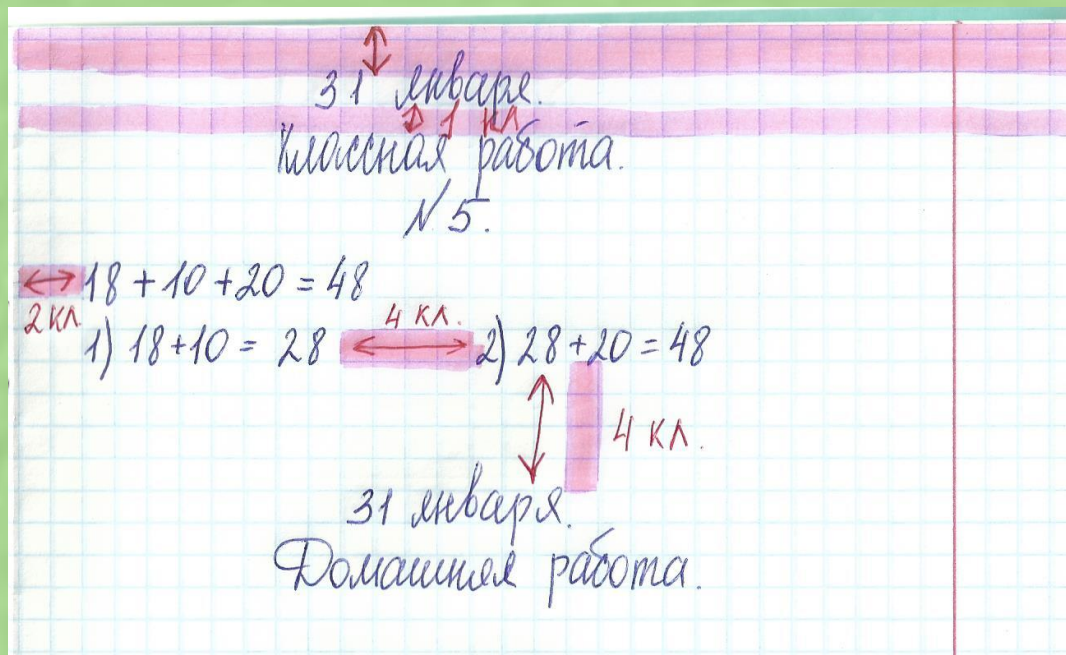 31 января.
1 кл
Классная работа.
№ 5.
18 + 10 + 20 = 48
2 кл.
4 кл.
1) 18 + 10 = 28 2) 28 + 20 = 48
4 кл.
31 января.
Домашняя работа.